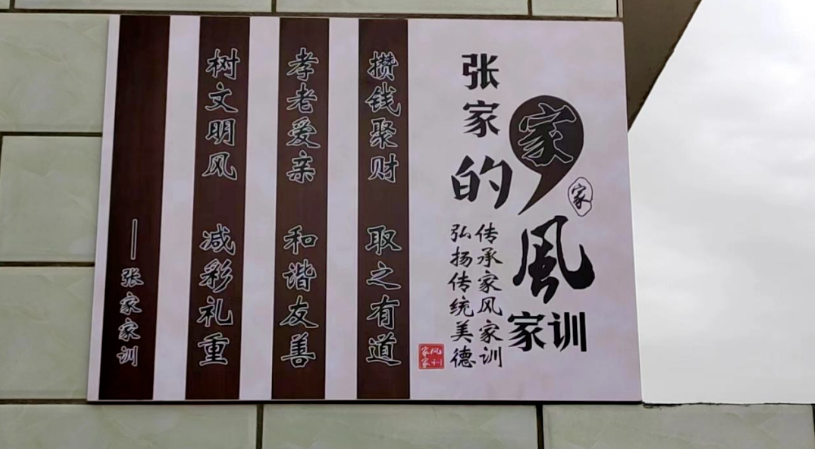 家風
家
张家的
家训
传承家风家训
弘扬传统美德
家风
家训
攒钱聚财 取之有道
孝老爱亲 和谐友善
树文明风 减彩礼重
——张家家训